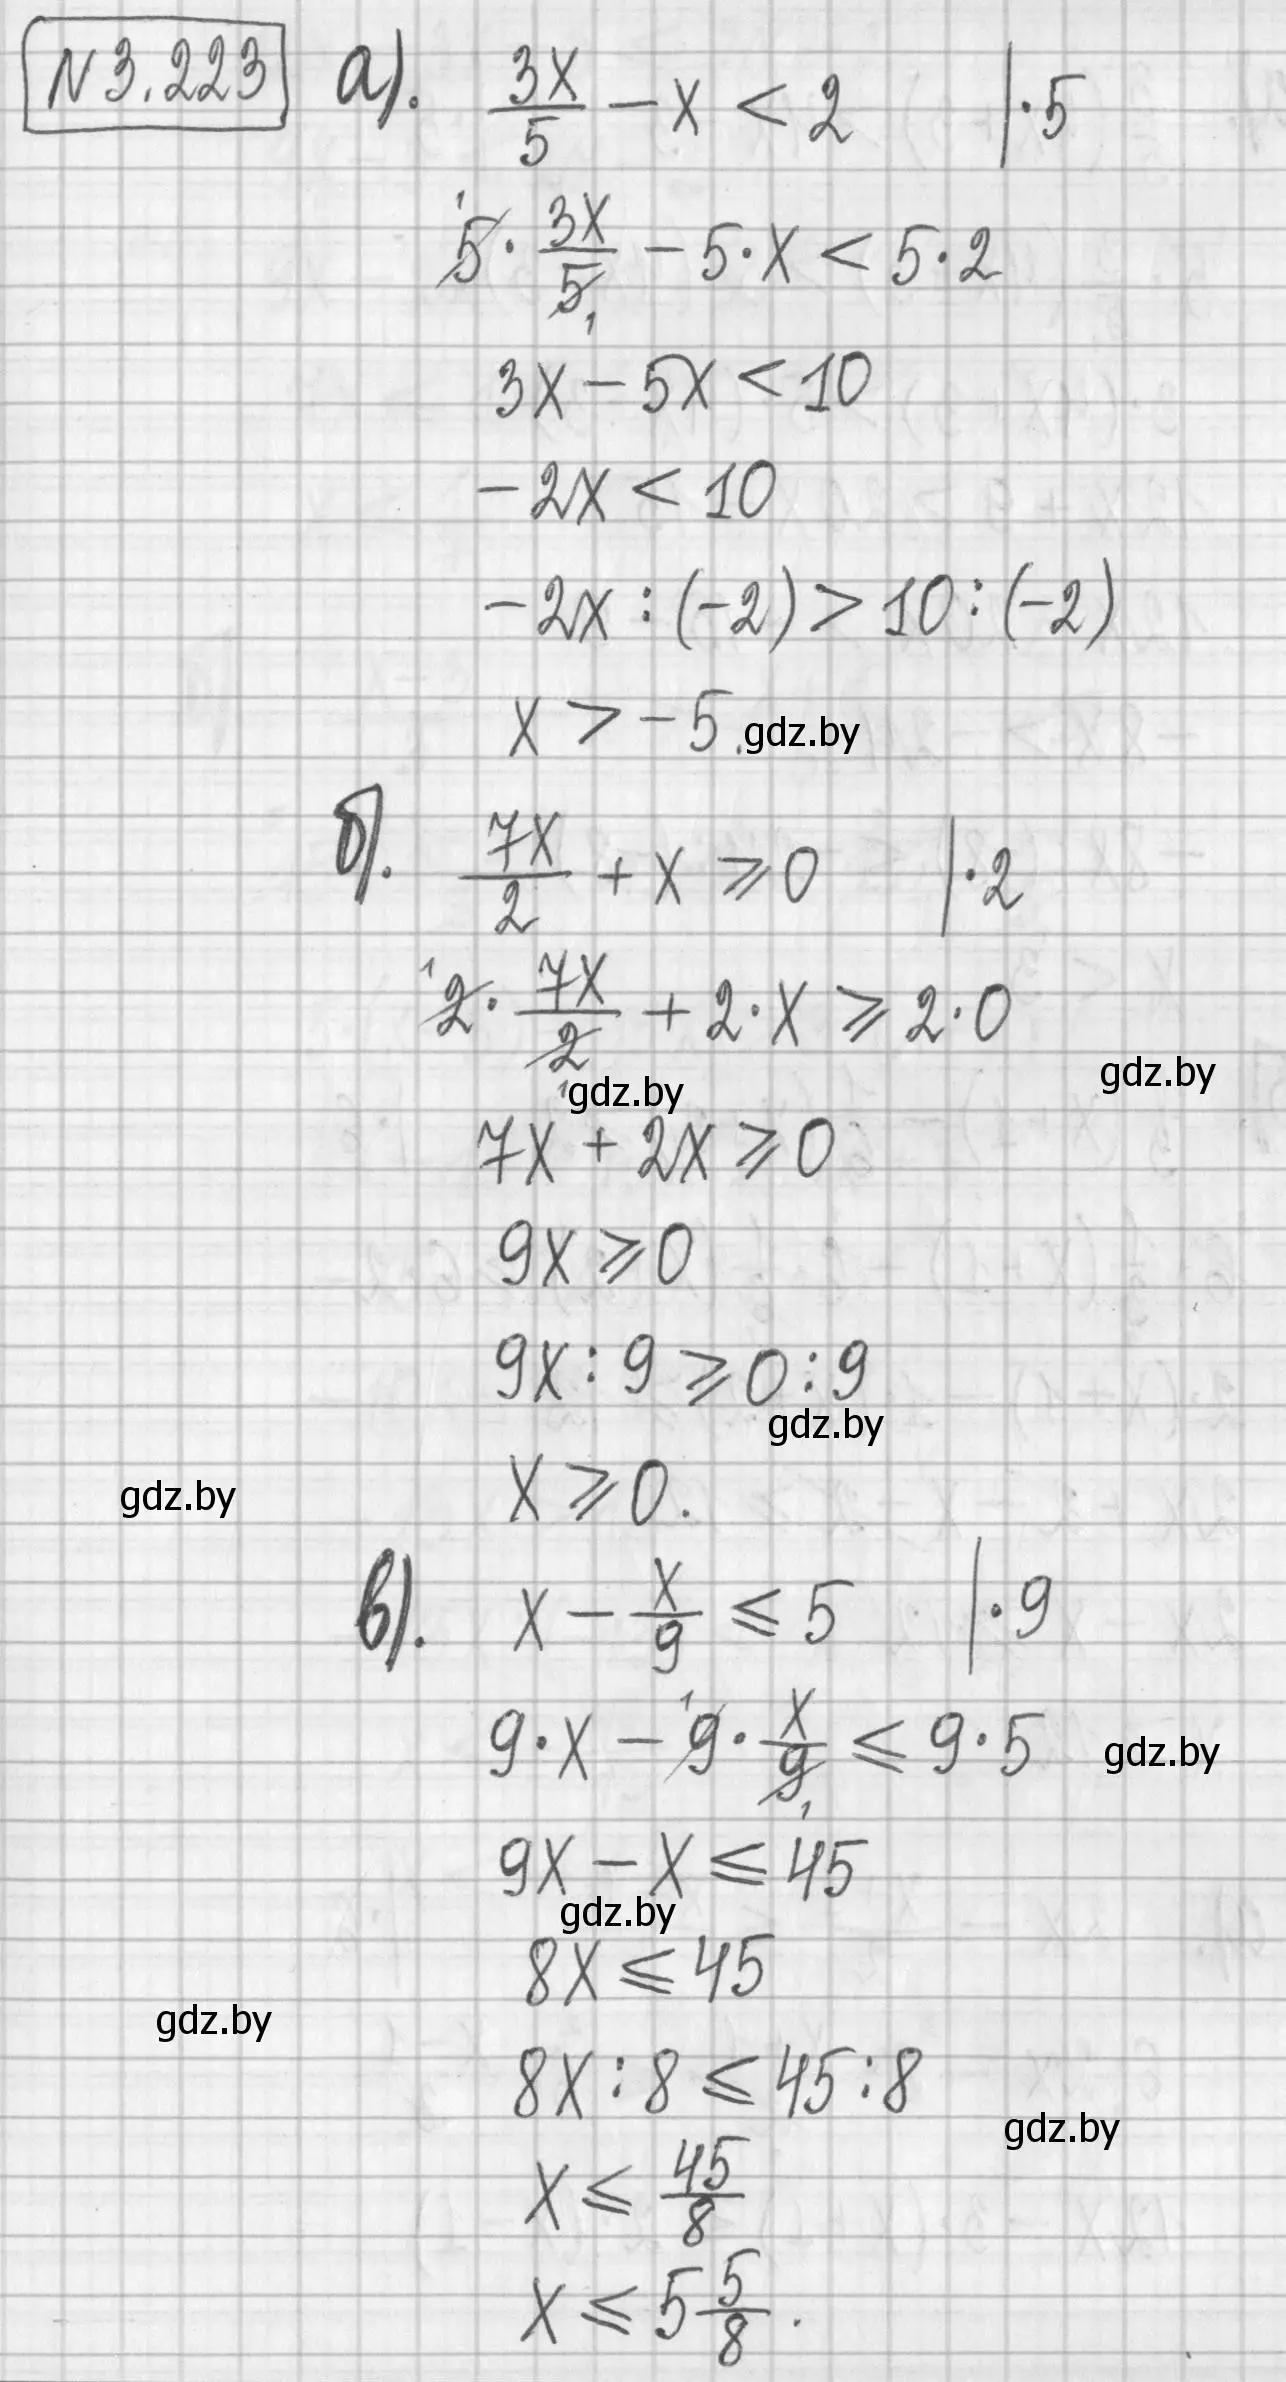 N 3.223 а). 3x/5 - x < 2 | · 5
5 · 3x/5 - 5 · x < 5 · 2
3x - 5x < 10
-2x < 10
-2x : (-2) > 10 : (-2)
x > -5. gdz.by
б). 7x/2 + x ⩾ 0 | · 2
2 · 7x/2 + 2 · x ⩾ 2 · 0
gdz.by gdz.by
7x + 2x ⩾ 0
9x ⩾ 0
9x : 9 ⩾ 0 : 9
gdz.by
gdz.by x ⩾ 0.
в). x - x/9 ⩽ 5 | · 9
9 · x - 9 · x/9 ⩽ 9 · 5 gdz.by
9x - x ⩽ 45
gdz.by
8x ⩽ 45
gdz.by
8x : 8 ⩽ 45 : 8
gdz.by
x ⩽ 45/8
x ⩽ 5 5/8.